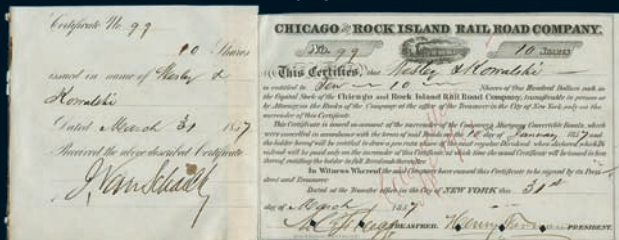 Certificate No 99
10 Shares
issued in name of Wesley &
Kowalski
Dated March 31 1857
Received the above described Certificate
CHICAGO AND ROCK ISLAND RAIL ROAD COMPANY.
No. 99
10 SHARES
This Certifies, that Wesley & Kowalski
is entitled to Ten — 10 — Shares of One Hundred Dollars each in
the Capital Stock of the Chicago and Rock Island Rail Road Company, transferable in person or
by Attorney on the Books of the Company at the office of the Transfer in the City of New York only on the
surrender of this Certificate.
This Certificate is issued on account of the surrender of the Company's Mortgage Convertible Bonds, which
were cancelled in accordance with the terms of said Bonds on the 10 day of January 1857 and
the holder hereof will be entitled to draw a pro rata share of the next regular Dividend when declared which Di-
vidend will be paid only on the surrender of this Certificate at which time the usual Certificate will be issued in lieu
hereof entitling the holder to full Dividends thereafter.
In Witness Whereof the said Company have caused this Certificate to be signed by its Presi-
dent and Treasurer
Dated at the Transfer office in the City of NEW YORK this 31st
day of March 1857
TREASURER. Henry PRESIDENT.